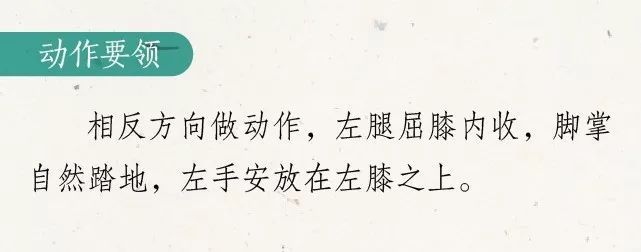 动作要领
相反方向做动作，左腿屈膝内收，脚掌
自然踏地，左手安放在左膝之上。